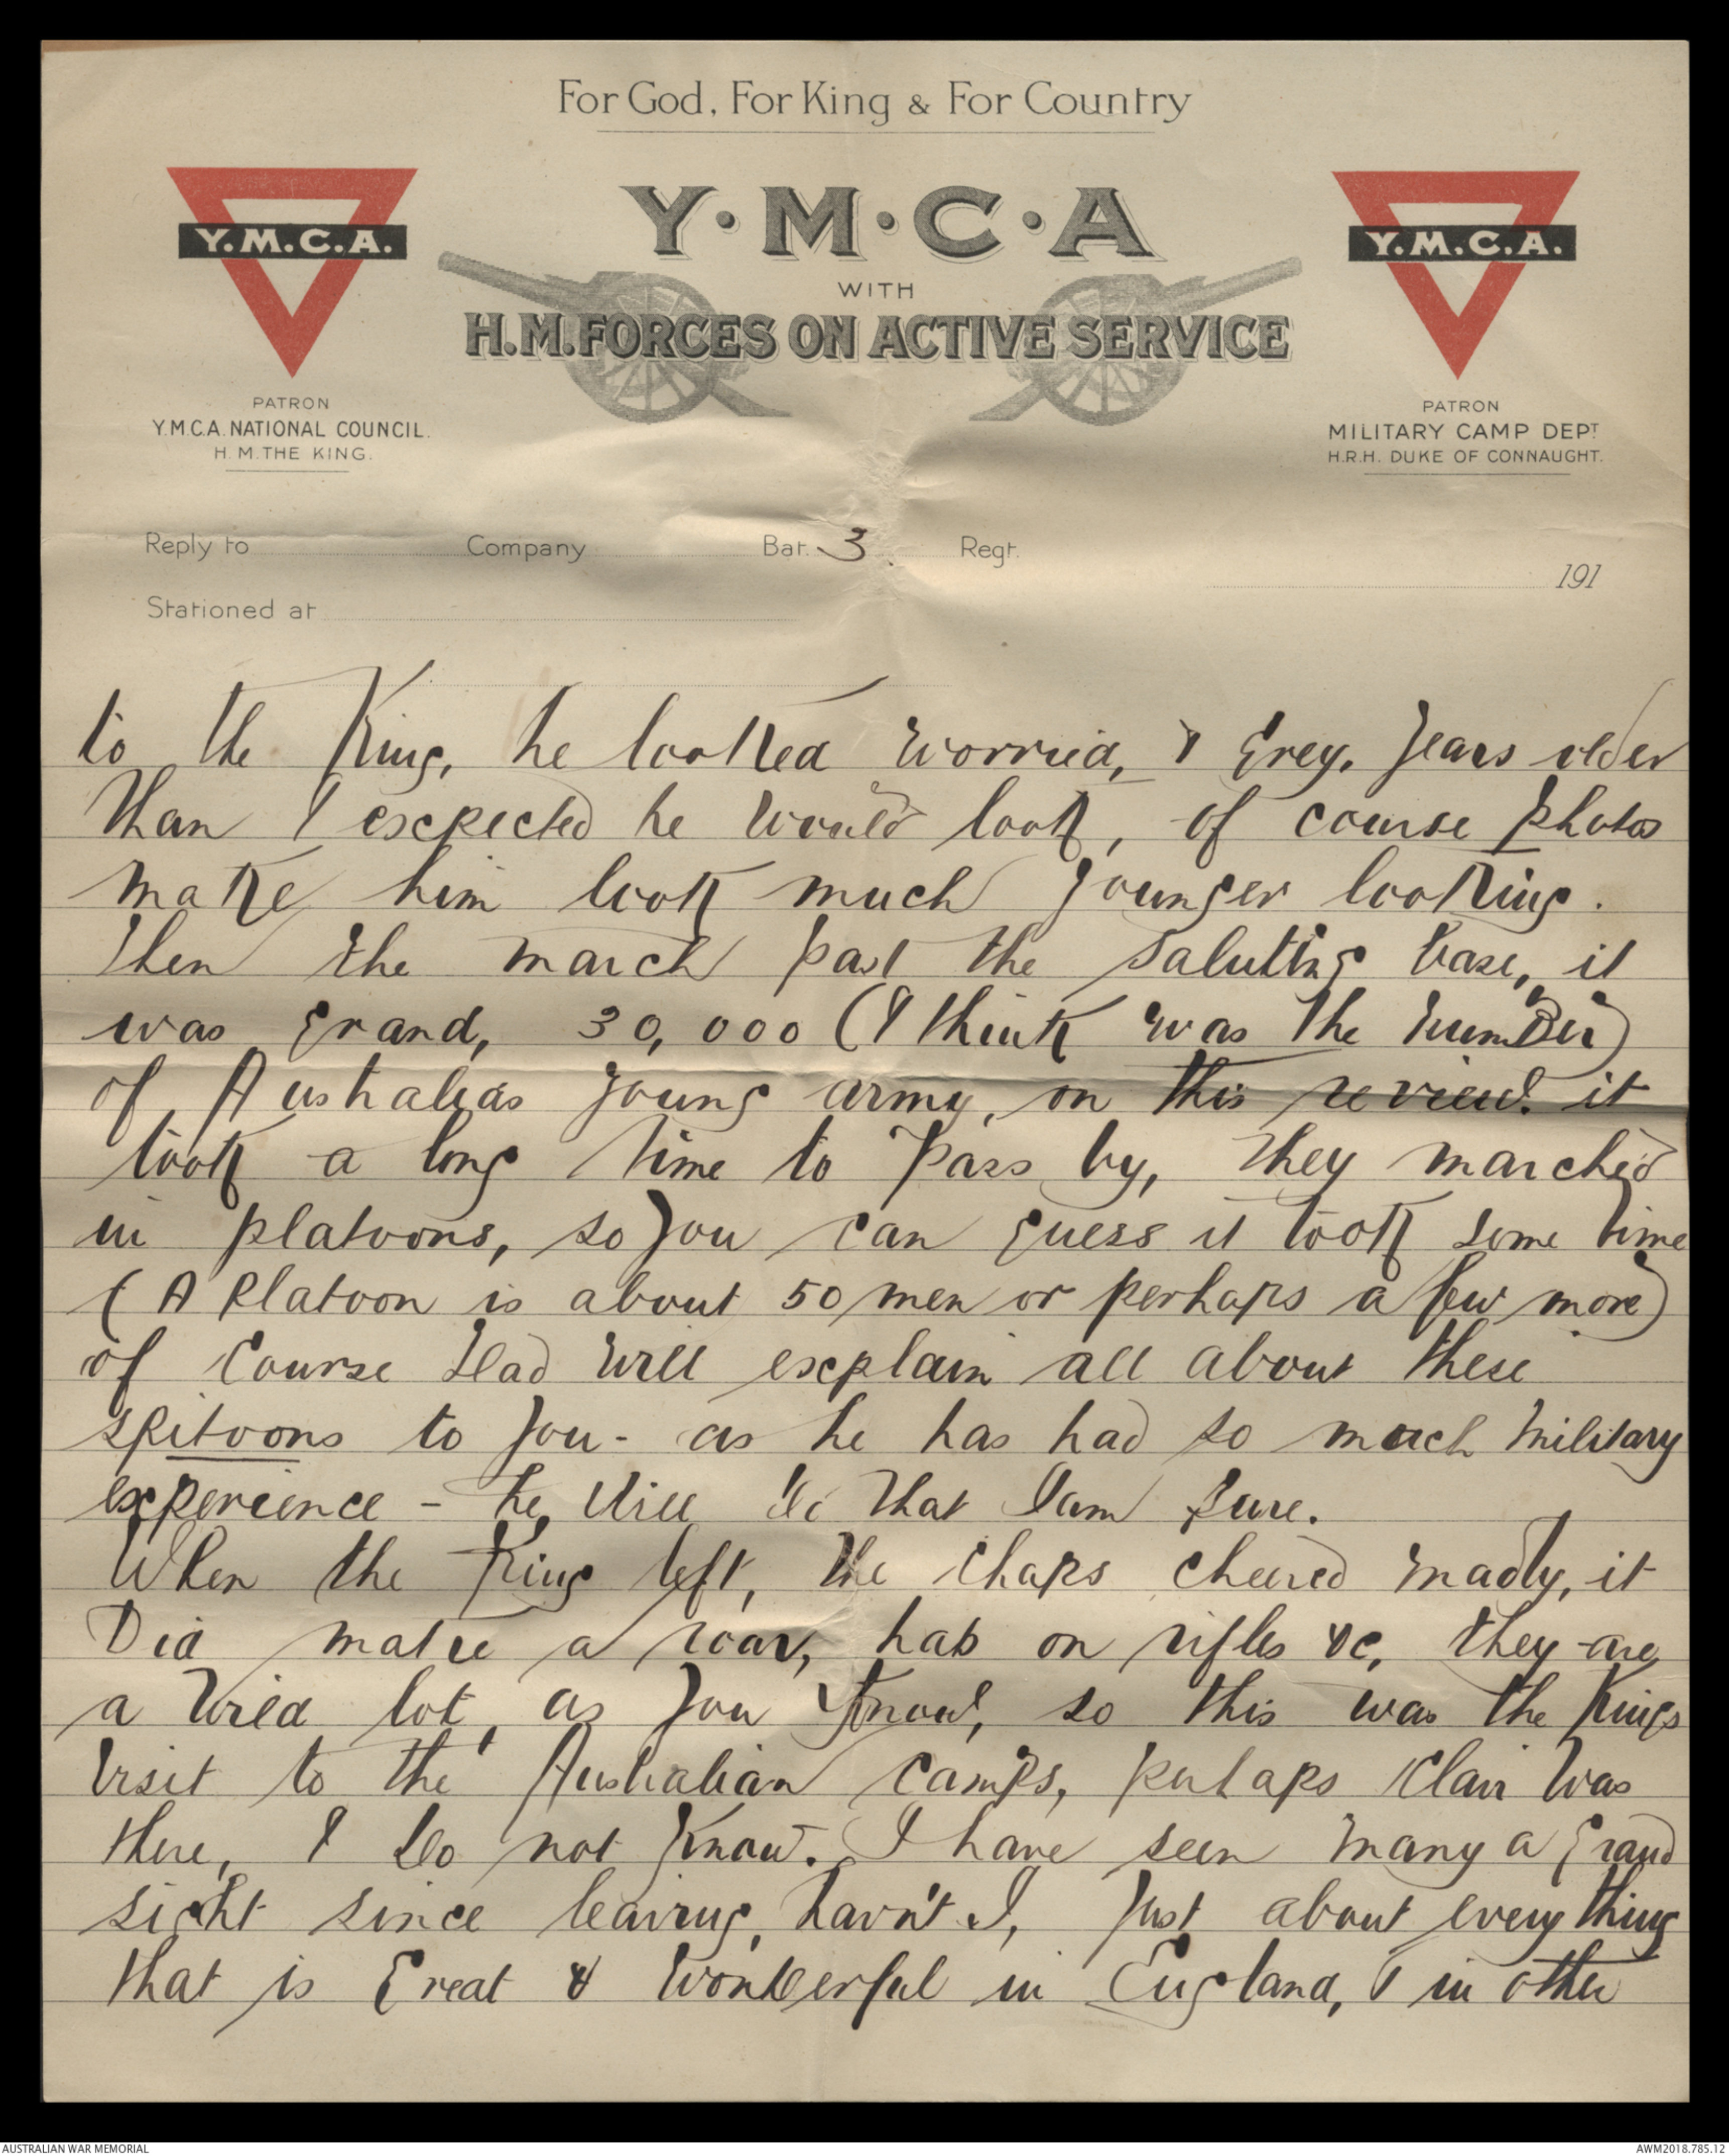 For God, For King & For Country
Y.M.C.A.
Y·M·C·A
Y.M.C.A.
WITH
H.M. FORCES ON ACTIVE SERVICE
PATRON
Y.M.C.A. NATIONAL COUNCIL.
H.M. THE KING.
PATRON
MILITARY CAMP DEPT
H.R.H. DUKE OF CONNAUGHT.
Reply to Company Bat. 3. Regt.
191
Stationed at
to the King, he looked worried, & Grey. years older
than I expected he would look, of course photos
make him look much younger looking.
Then the march past the saluting base, it
was grand, 30,000 (I think was the number)
of Australias young army, on this review. it
took a long time to pass by, they marched
in platoons, so you can guess it took some time
(A Platoon is about 50 men or perhaps a few more)
of course Dad will explain all about these
spitoons to you - as he has had so much military
experience - he will do that I am sure.
When the King left, the chaps cheered madly, it
Did make a roar, hats on rifles &c, they are
a wild lot, as you know, so this was the Kings
visit to the Australian camps, perhaps Clair was
there, I do not know. I have seen many a grand
sight since leaving, havn't I, Just about every thing
that is Great & wonderful in England, & in other
AUSTRALIAN WAR MEMORIAL
AWM2018.785.12